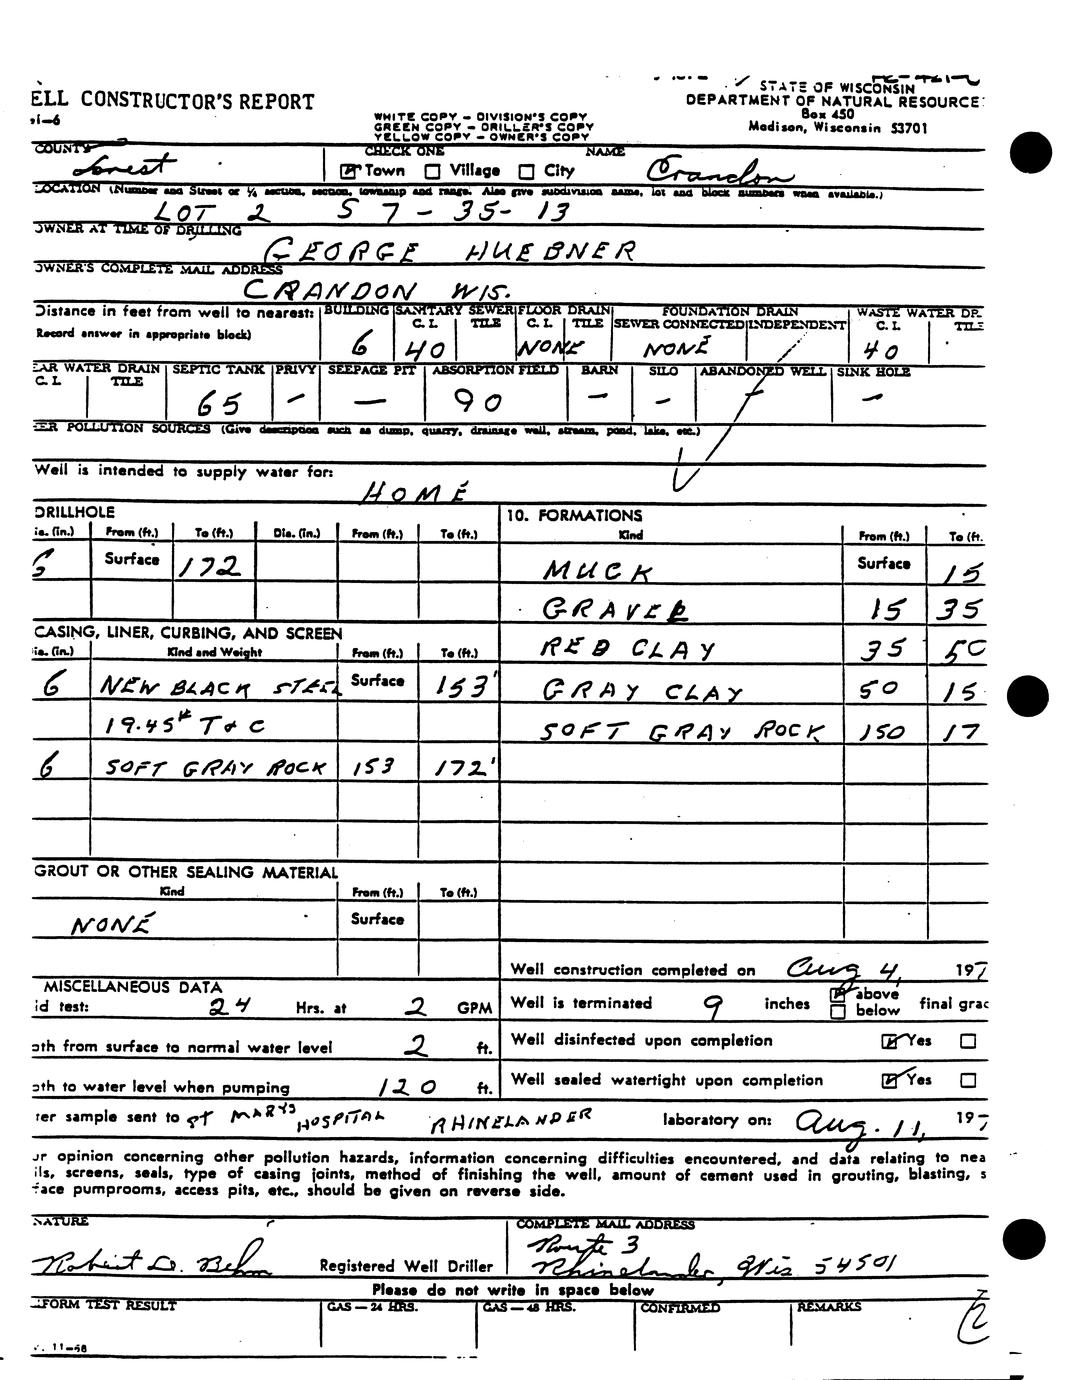 ELL CONSTRUCTOR'S REPORT
STATE OF WISCONSIN
DEPARTMENT OF NATURAL RESOURCE
Box 450
Madison, Wisconsin 53701
WHITE COPY – DIVISION'S COPY
GREEN COPY – DRILLER'S COPY
YELLOW COPY – OWNER'S COPY
COUNTY CHECK ONE NAME
Forest Town Village City Crandon
LOCATION (Number and Street or ¼ section, section, township and range. Also give subdivision name, lot and block numbers when available.)
LOT 2 S 7 - 35 - 13
OWNER AT TIME OF DRILLING
GEORGE HUEBNER
OWNER'S COMPLETE MAIL ADDRESS
CRANDON WIS.
Distance in feet from well to nearest: BUILDING SANITARY SEWER FLOOR DRAIN FOUNDATION DRAIN WASTE WATER DR
C. I. TILE C. I. TILE SEWER CONNECTED INDEPENDENT C. I. TILE
Record answer in appropriate block)
6 40 NONE NONE 40
EAR WATER DRAIN SEPTIC TANK PRIVY SEEPAGE PIT ABSORPTION FIELD BARN SILO ABANDONED WELL SINK HOLE
C. I. TILE
65 – — 90 – – – –
ER POLLUTION SOURCES (Give description such as dump, quarry, drainage well, stream, pond, lake, etc.)
Well is intended to supply water for:
HOME
DRILLHOLE
ia. (in.) From (ft.) To (ft.) Dia. (in.) From (ft.) To (ft.)
Surface 172
10. FORMATIONS
Kind From (ft.) To (ft.
MUCK Surface 15
GRAVEL 15 35
RED CLAY 35 50
GRAY CLAY 50 15
SOFT GRAY ROCK 150 17
CASING, LINER, CURBING, AND SCREEN
ia. (in.) Kind and Weight From (ft.) To (ft.)
6 NEW BLACK STEEL Surface 153'
19.45# T & C
6 SOFT GRAY ROCK 153 172'
GROUT OR OTHER SEALING MATERIAL
Kind From (ft.) To (ft.)
NONE Surface
MISCELLANEOUS DATA
ld test: 24 Hrs. at 2 GPM
pth from surface to normal water level 2 ft.
pth to water level when pumping 120 ft.
Well construction completed on Aug 4, 197
Well is terminated 9 inches above below final grad
Well disinfected upon completion Yes
Well sealed watertight upon completion Yes
ter sample sent to ST MARYS HOSPITAL RHINELANDER laboratory on: Aug. 11, 197
ur opinion concerning other pollution hazards, information concerning difficulties encountered, and data relating to nea
ils, screens, seals, type of casing joints, method of finishing the well, amount of cement used in grouting, blasting, s
face pumprooms, access pits, etc., should be given on reverse side.
NATURE COMPLETE MAIL ADDRESS
Route 3
Robert D. Behm Registered Well Driller Rhinelander, Wis 54501
Please do not write in space below
FORM TEST RESULT GAS – 24 HRS. GAS – 48 HRS. CONFIRMED REMARKS
. 11–68